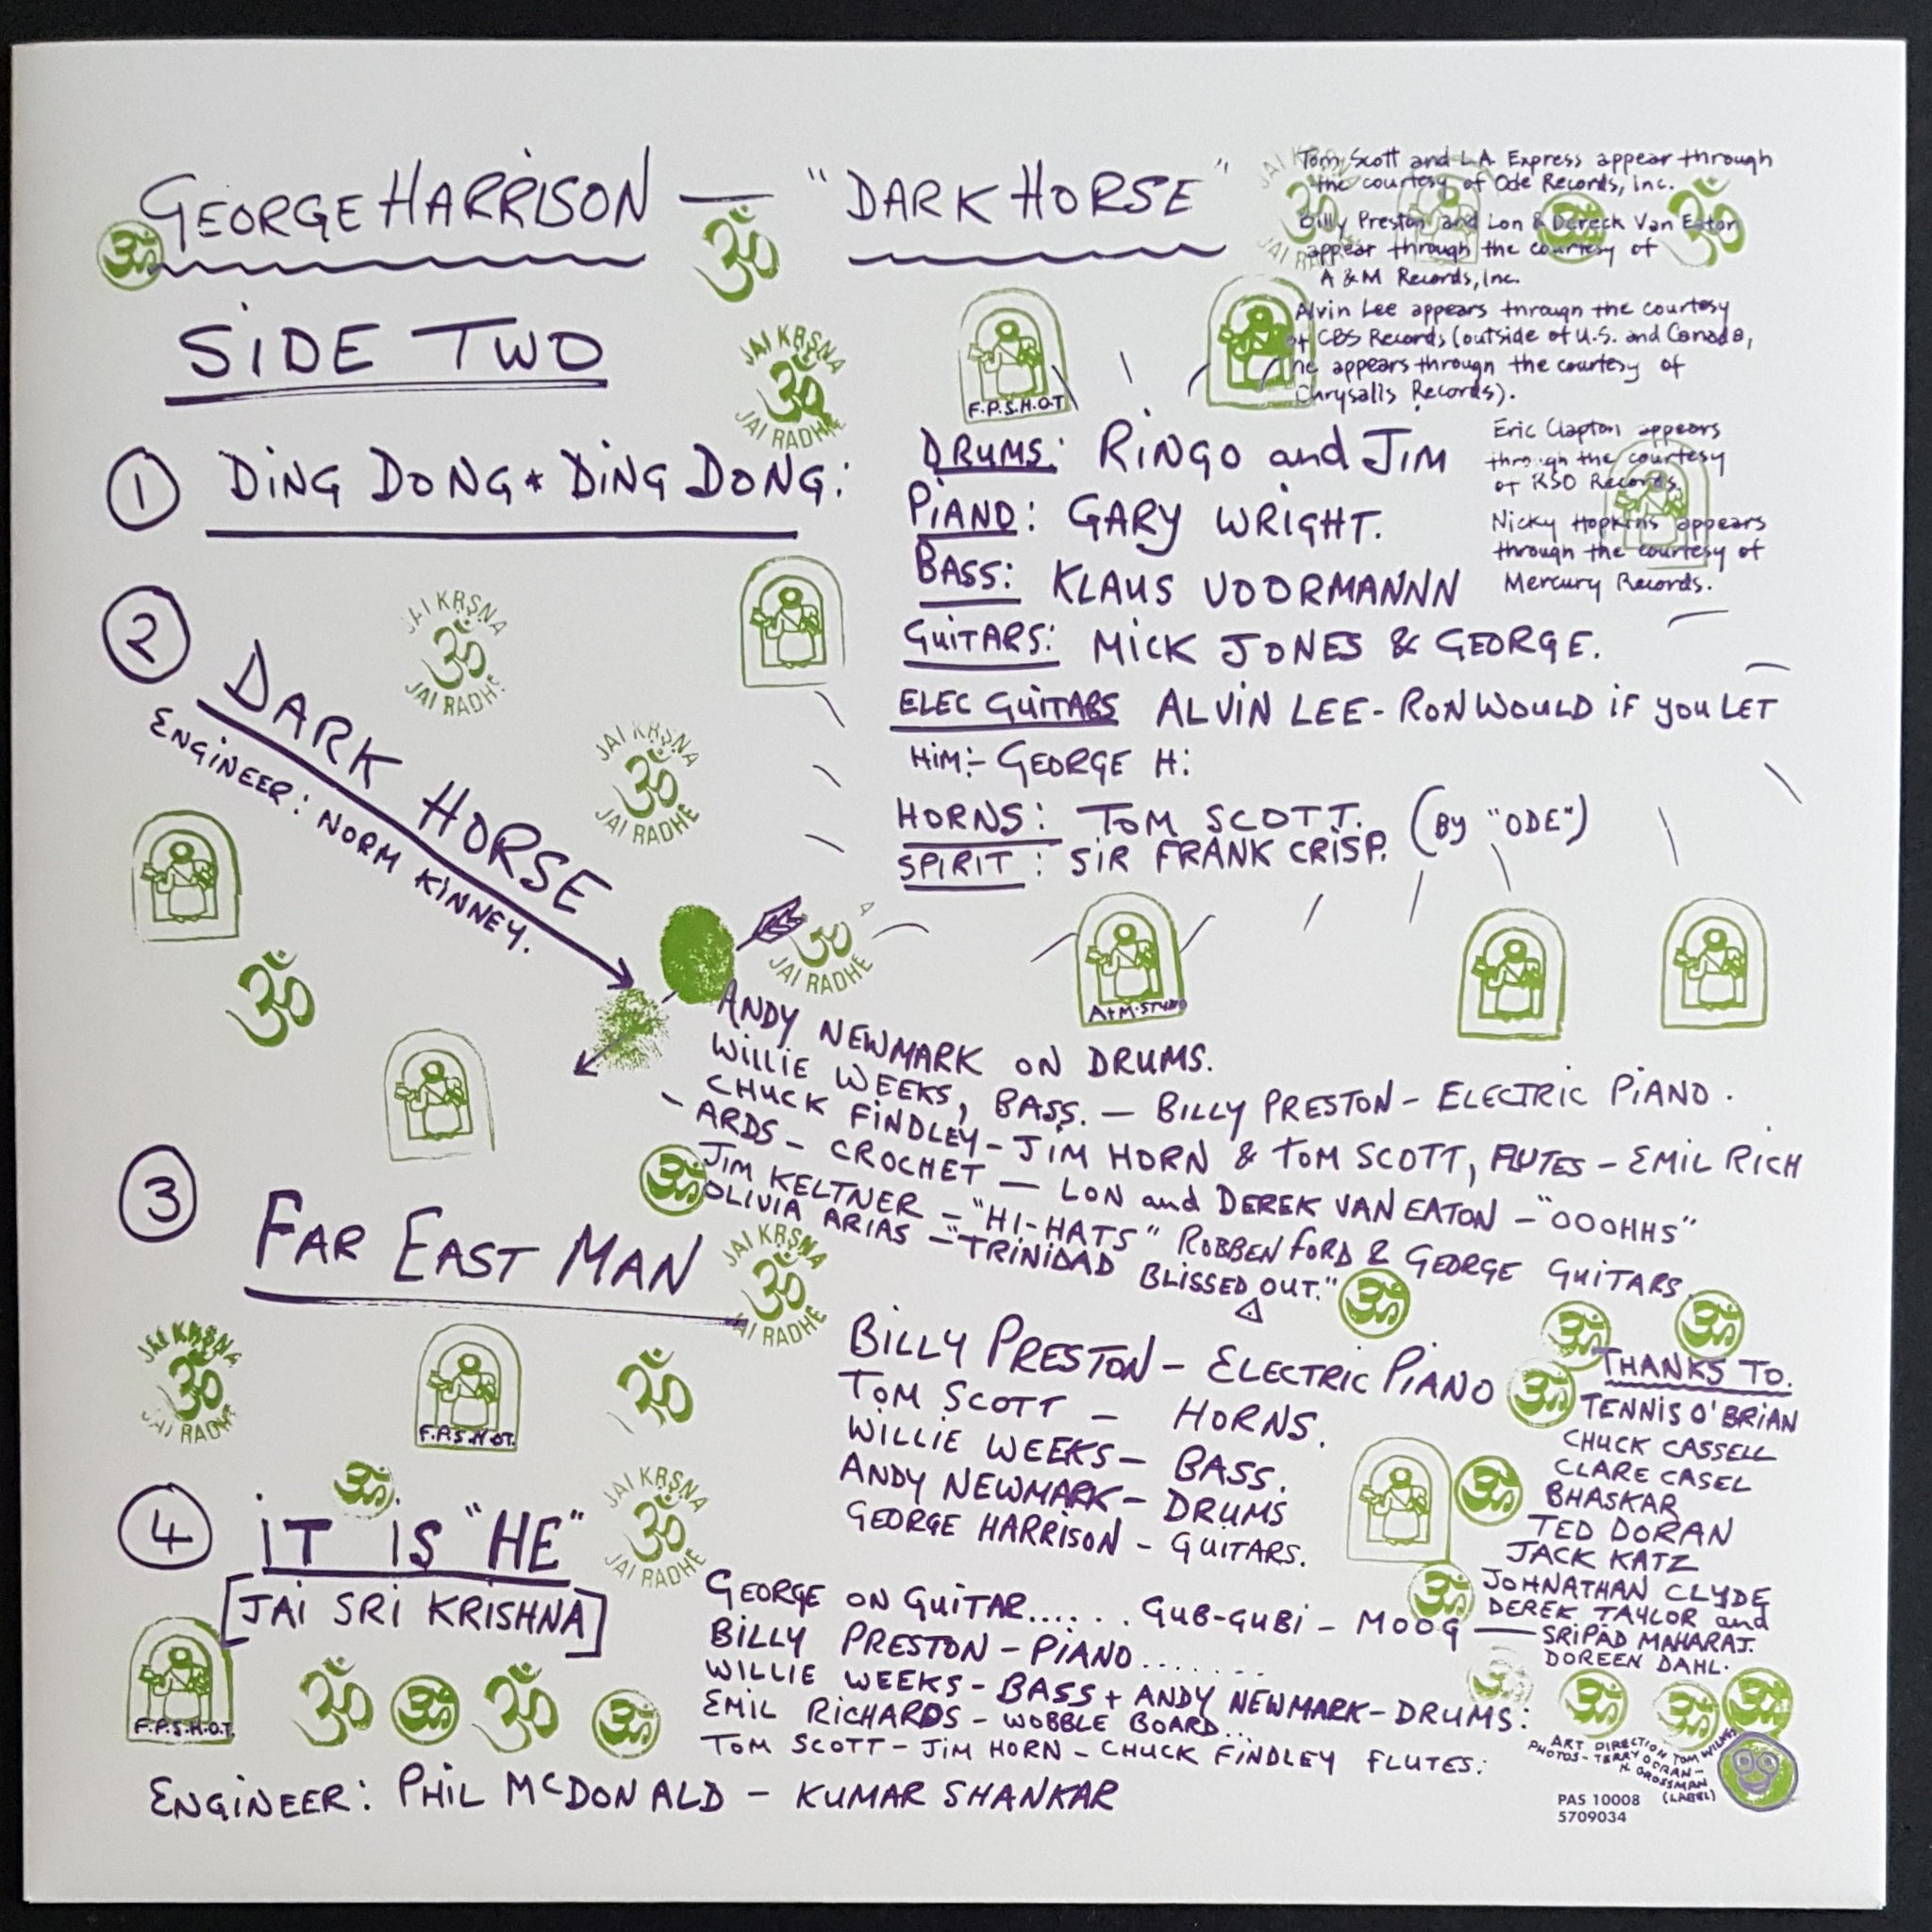 GEORGE HARRISON — "DARK HORSE"
SIDE TWO
Tom Scott and L.A. Express appear through
the courtesy of Ode Records, Inc.
Billy Preston and Lon & Dereck Van Eaton
appear through the courtesy of
A & M Records, Inc.
Alvin Lee appears through the courtesy
of CBS Records (outside of U.S. and Canada,
he appears through the courtesy of
Chrysalis Records).
Eric Clapton appears
through the courtesy
of RSO Records.
Nicky Hopkins appears
through the courtesy of
Mercury Records.
JAI KRSNA
ॐ
JAI RADHE
F.P.S.H.O.T
① DING DONG * DING DONG:
DRUMS: RINGO and JIM
PIANO: GARY WRIGHT.
BASS: KLAUS VOORMANNN
GUITARS: MICK JONES & GEORGE.
ELEC GUITARS ALVIN LEE - RON WOULD IF YOU LET
HIM:- GEORGE H:
HORNS: TOM SCOTT. (BY "ODE")
SPIRIT: SIR FRANK CRISP.
② DARK HORSE
ENGINEER: NORM KINNEY.
JAI KRSNA
ॐ
JAI RADHE
JAI KRSNA
ॐ
JAI RADHE
ॐ
JAI RADHE
A+M. STUDIO
ANDY NEWMARK ON DRUMS.
WILLIE WEEKS, BASS. — BILLY PRESTON - ELECTRIC PIANO.
CHUCK FINDLEY - JIM HORN & TOM SCOTT, FLUTES - EMIL RICH
- ARDS - CROCHET — LON and DEREK VAN EATON - "OOOHHS"
JIM KELTNER - "HI-HATS" ROBBEN FORD & GEORGE GUITARS.
OLIVIA ARIAS - "TRINIDAD BLISSED OUT."
③ FAR EAST MAN
JAI KRSNA
ॐ
JAI RADHE
BILLY PRESTON - ELECTRIC PIANO
TOM SCOTT — HORNS.
WILLIE WEEKS - BASS.
ANDY NEWMARK - DRUMS
GEORGE HARRISON - GUITARS.
JAI KRSNA
ॐ
JAI RADHE
F.P.S.H.OT.
THANKS TO.
TENNIS O'BRIAN
CHUCK CASSELL
CLARE CASEL
BHASKAR
TED DORAN
JACK KATZ
JOHNATHAN CLYDE
DEREK TAYLOR and
SRIPAD MAHARAJ.
DOREEN DAHL.
④ IT IS "HE"
[JAI SRI KRISHNA]
JAI KRSNA
ॐ
JAI RADHE
F.P.S.H.O.T.
GEORGE ON GUITAR...... GUB-GUBI - MOOG
BILLY PRESTON - PIANO.......
WILLIE WEEKS - BASS + ANDY NEWMARK - DRUMS:
EMIL RICHARDS - WOBBLE BOARD..
TOM SCOTT - JIM HORN - CHUCK FINDLEY FLUTES:
ENGINEER: PHIL McDONALD - KUMAR SHANKAR
ART DIRECTION TOM WILKES
PHOTOS - TERRY DORAN -
H. GROSSMAN
(LABEL)
PAS 10008
5709034